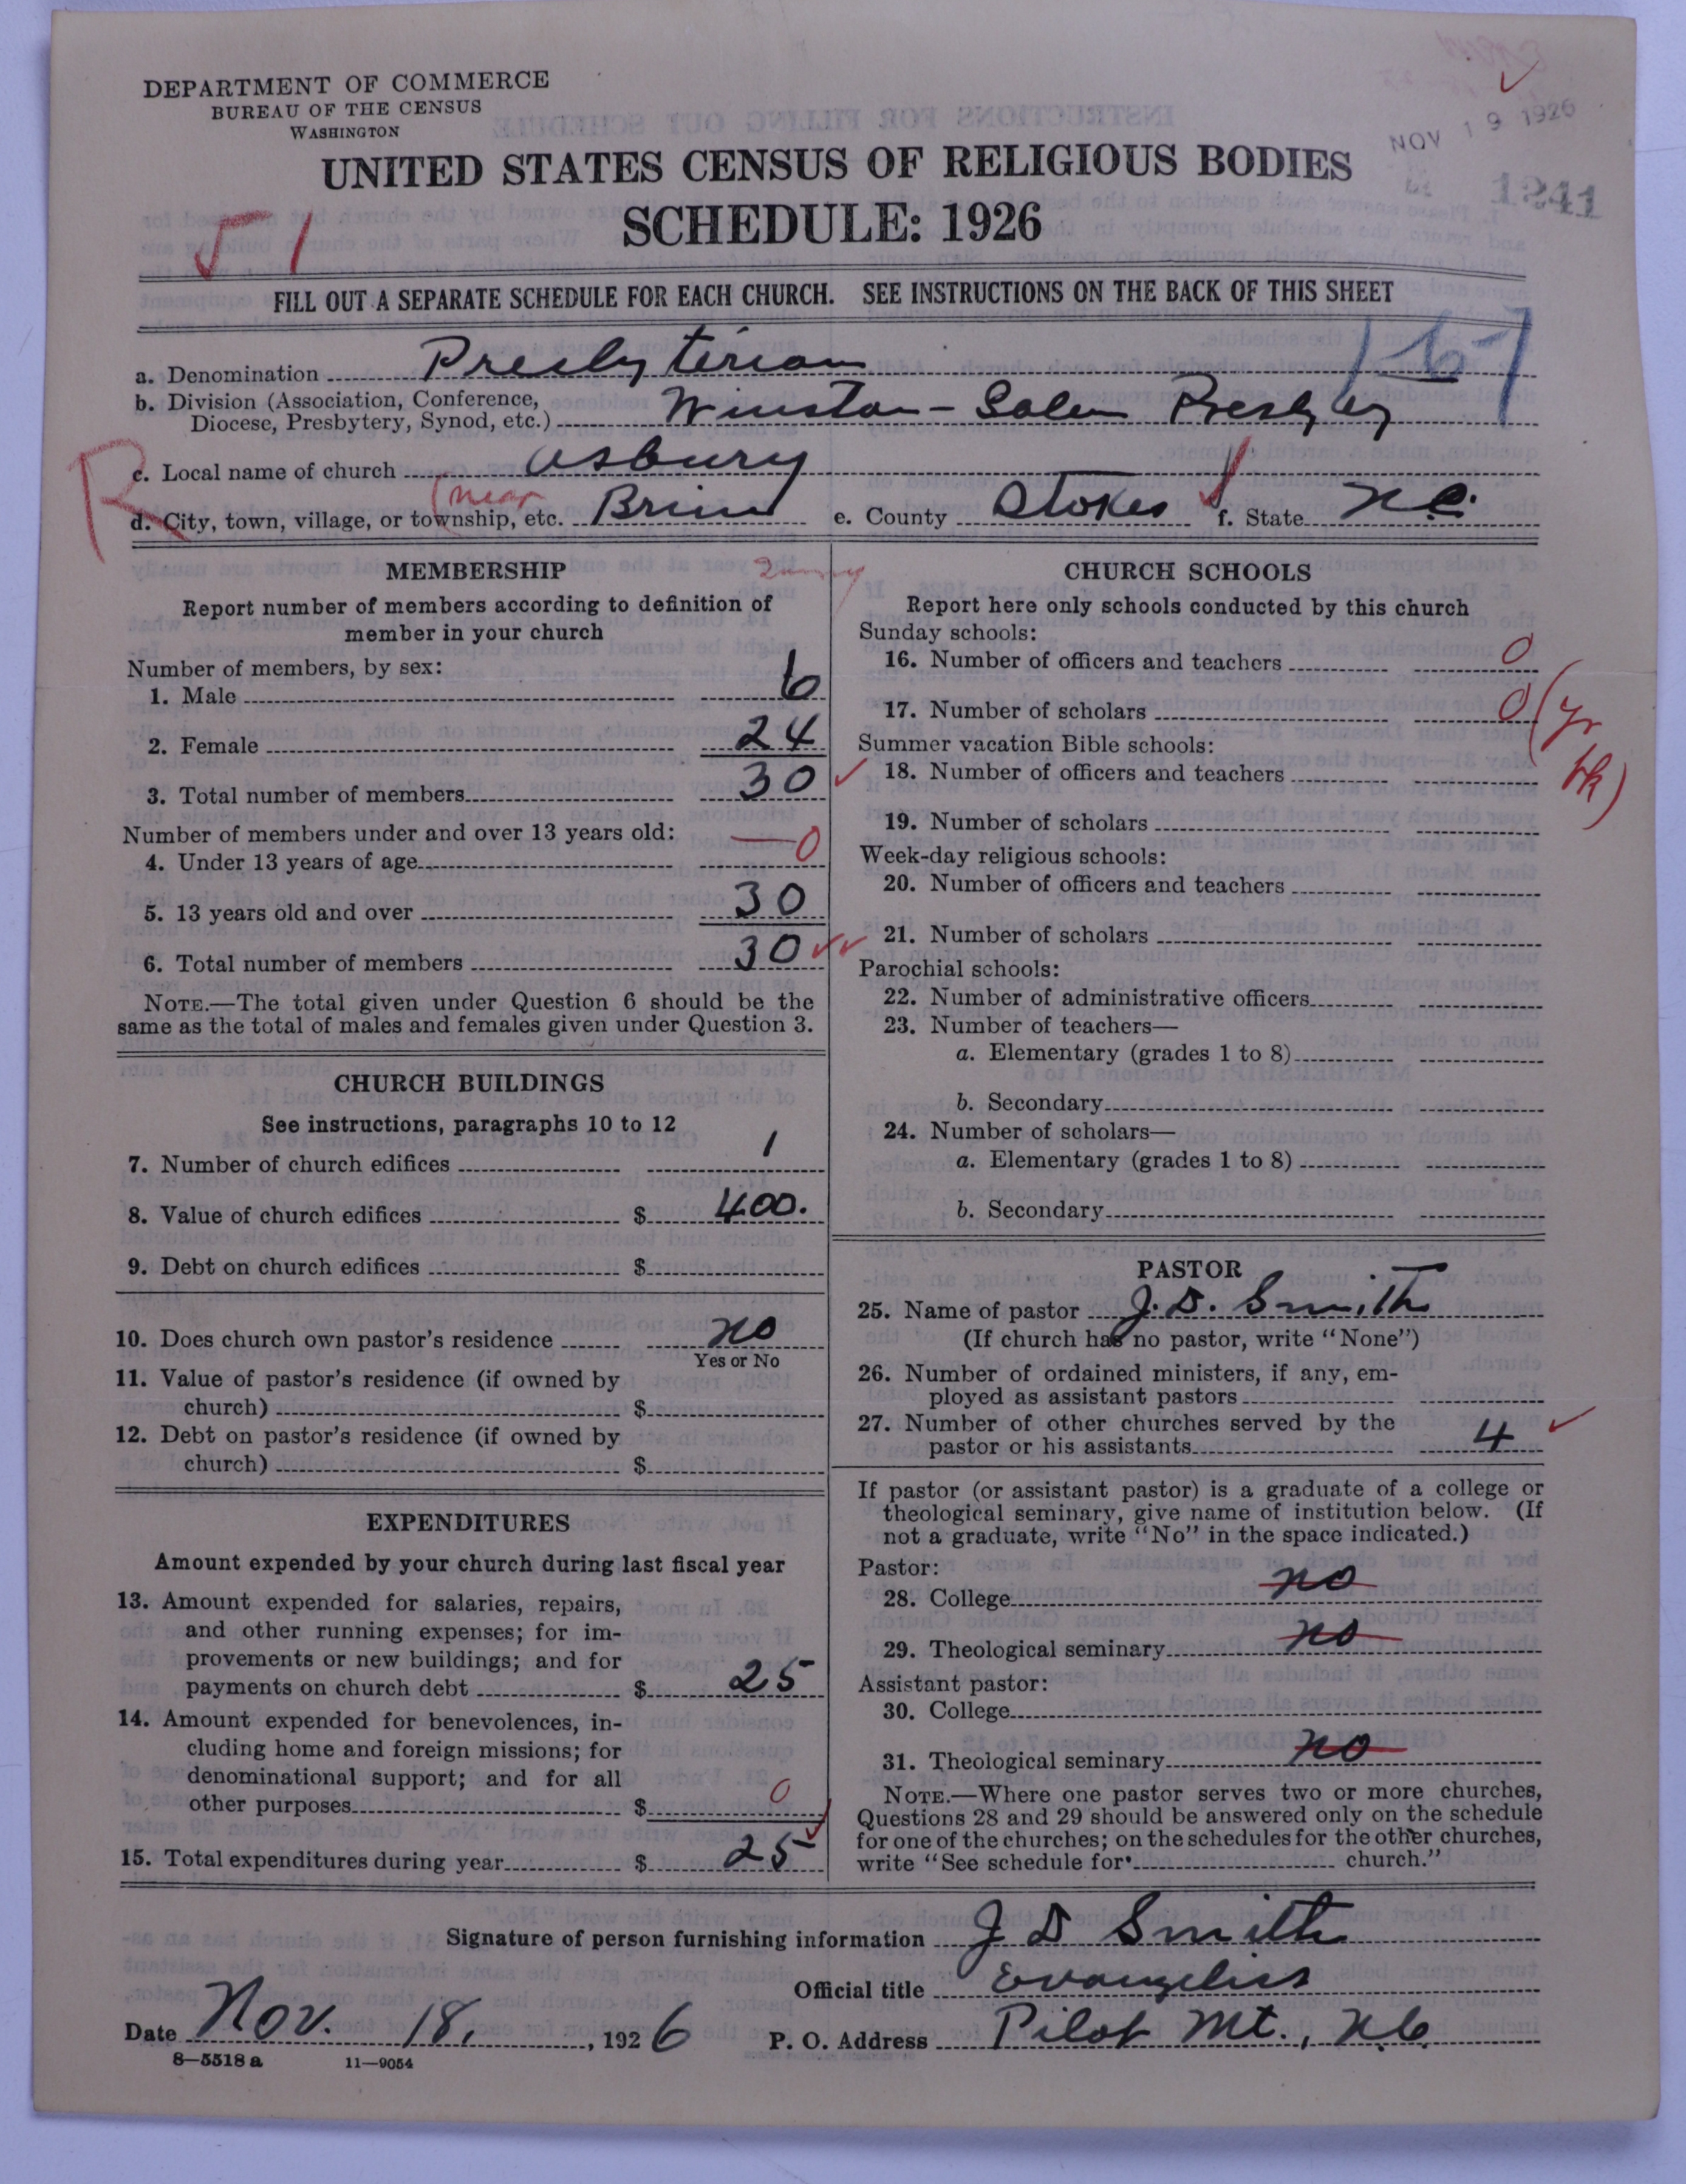 DEPARTMENT OF COMMERCE
BUREAU OF THE CENSUS
WASHINGTON
NOV 19 1926
1241
UNITED STATES CENSUS OF RELIGIOUS BODIES
SCHEDULE: 1926
51
FILL OUT A SEPARATE SCHEDULE FOR EACH CHURCH. SEE INSTRUCTIONS ON THE BACK OF THIS SHEET
167
a. Denomination Presbyterian
b. Division (Association, Conference,
Diocese, Presbytery, Synod, etc.) Winston-Salem Presbytery
R
c. Local name of church Asbury
(near
d. City, town, village, or township, etc. Brim e. County Stokes f. State N.C.
MEMBERSHIP
Report number of members according to definition of
member in your church
Number of members, by sex:
1. Male 6
2. Female 24
3. Total number of members 30
Number of members under and over 13 years old:
4. Under 13 years of age 0
5. 13 years old and over 30
6. Total number of members 30
NOTE.—The total given under Question 6 should be the
same as the total of males and females given under Question 3.
CHURCH BUILDINGS
See instructions, paragraphs 10 to 12
7. Number of church edifices 1
8. Value of church edifices $ 400.
9. Debt on church edifices $
10. Does church own pastor's residence no
Yes or No
11. Value of pastor's residence (if owned by
church) $
12. Debt on pastor's residence (if owned by
church) $
EXPENDITURES
Amount expended by your church during last fiscal year
13. Amount expended for salaries, repairs,
and other running expenses; for im-
provements or new buildings; and for
payments on church debt $ 25
14. Amount expended for benevolences, in-
cluding home and foreign missions; for
denominational support; and for all
other purposes $ 0
15. Total expenditures during year $ 25
CHURCH SCHOOLS
Report here only schools conducted by this church
Sunday schools:
16. Number of officers and teachers 0
17. Number of scholars 0 (yr
bk)
Summer vacation Bible schools:
18. Number of officers and teachers
19. Number of scholars
Week-day religious schools:
20. Number of officers and teachers
21. Number of scholars
Parochial schools:
22. Number of administrative officers
23. Number of teachers—
a. Elementary (grades 1 to 8)
b. Secondary
24. Number of scholars—
a. Elementary (grades 1 to 8)
b. Secondary
PASTOR
25. Name of pastor J. D. Smith
(If church has no pastor, write "None")
26. Number of ordained ministers, if any, em-
ployed as assistant pastors
27. Number of other churches served by the
pastor or his assistants 4
If pastor (or assistant pastor) is a graduate of a college or
theological seminary, give name of institution below. (If
not a graduate, write "No" in the space indicated.)
Pastor:
28. College no
29. Theological seminary no
Assistant pastor:
30. College
31. Theological seminary no
NOTE.—Where one pastor serves two or more churches,
Questions 28 and 29 should be answered only on the schedule
for one of the churches; on the schedules for the other churches,
write "See schedule for church."
Signature of person furnishing information J D Smith
Official title Evangelist
Date Nov. 18, 1926 P. O. Address Pilot Mt., N.C.
8—5518a 11—9054